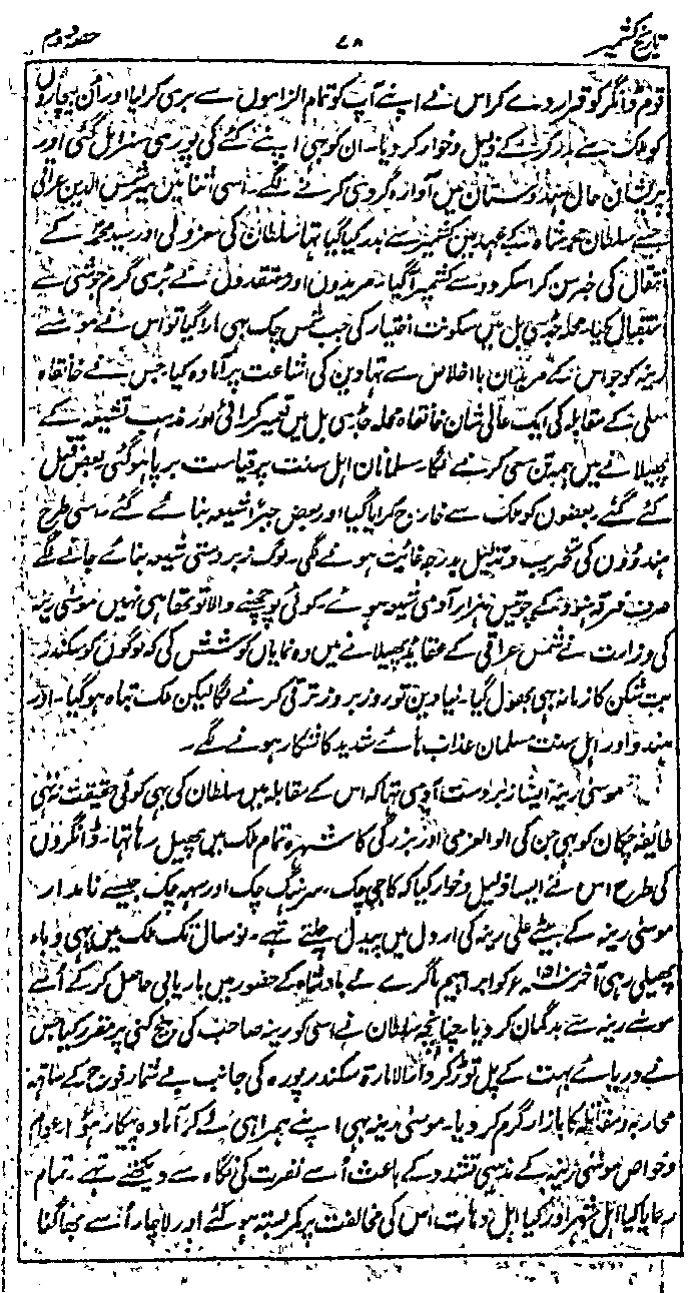 تاریخ کشمیر ۴۸ حصہ دوم
قوم ڈانگر کو قرار دے کر اس نے اپنے آپ کو تمام الزاموں سے بری کرایا اور اُن بیچاروں
کو ملک سے بدر کر کے ذلیل و خوار کر دیا۔ ان کو بھی اپنے کئے کی پوری سزا مل گئی اور
پریشان حال ہندوستان میں آوارہ گردی کرنے لگے۔ اسی اثنا میں میر شمس الدین عراقی
جسے سلطان محمد شاہ کے عہد میں کشمیر سے بدر کیا گیا تہا سلطان کی معزولی اور سید محمد کے
انتقال کی خبر سن کر اسکردو سے کشمیر آگیا۔ مریدوں اور معتقدوں نے بڑی گرم جوشی سے
استقبال کیا۔ محلہ جڈی بل میں سکونت اختیار کی جب شمس چک بہی مارا گیا تو اس نے موسٰے
رینہ کو جو اس کے مریدان بااخلاص سے تہا دین کی اشاعت پر آمادہ کیا جس نے خانقاہ
معلی کے مقابلہ کی ایک عالی شان خانقاہ محلہ جڈی بل میں تعمیر کرائی اور مذہب تشیعہ کے
پھیلانے میں ہمہ تن سعی کرنے لگا۔ مسلمانان اہل سنت پر قیامت برپا ہوگئی بعض قتل
کئے گئے بعضوں کو ملک سے خارج کرایا گیا اور بعض جبراً شیعہ بنائے گئے۔ اسی طرح
ہندوؤں کی تخریب و تذلیل بدرجہ غائیت ہونے لگی۔ لوگ زبردستی شیعہ بنائے جانے لگے
صرف فرقہ ہنود کے چوبیس ہزار آدمی شیعہ ہوئے۔ کوئی پوچھنے والا تو تھا ہی نہیں موسٰی رینہ
کی وزارت نے شمس عراقی کے عقاید پھیلانے میں وہ نمایاں کوشش کی کہ لوگوں کو سکندر
بت شکن کا زمانہ بہی بھول گیا۔ نیا دین تو روز بروز ترقی کرنے لگا لیکن ملک تباہ ہو گیا۔ اور
ہندو اور اہل سنت مسلمان عذاب ہائے شدید کا شکار ہونے لگے۔
موسٰی رینہ ایسا زبردست آدمی تہا کہ اس کے مقابلہ میں سلطان کی بہی کوئی حقیقت نہ تہی
طایفہ چکان کو بہی جن کی اولوالعزمی اور بزرگی کا شہرہ تمام ملک میں پھیل رہا تہا۔ ڈانگروں
کی طرح اس نے ایسا ذلیل و خوار کیا کہ کاجی چک۔ سرہنگ چک اور سپہ چک جیسے نامدار
موسٰی رینہ کے بیٹے علی رینہ کی اردل میں پیدل چلتے تہے۔ نو سال تک ملک میں یہی وباء
پھیلی رہی آخر ۱۵۱ ء کو ابراہیم ماگرے نے بادشاہ کے حضور میں باریابی حاصل کر کے اُسے
موسٰے رینہ سے بدگمان کر دیا۔ چنانچہ سلطان نے اسی کو رینہ صاحب کی بیخ کنی پر مقرر کیا جس
نے دریائے بہت کے پل توڑ کر دارالامارۃ سکندر پورہ کی جانب بے شمار فوج کے ساتھ
محاربہ و مقاتلہ کا بازار گرم کر دیا۔ موسٰی رینہ بہی اپنے ہمراہی لے کر آمادہ پیکار ہوا عوام
و خواص موسٰی رینہ کے مذہبی تشدد کے باعث اُسے نفرت کی نگاہ سے دیکھتے تہے۔ تمام
رعایا کیا اہل شہر اور کیا اہل دہات اس کی مخالفت پر کمر بستہ ہو گئے اور لاچار اُسے بھاگنا